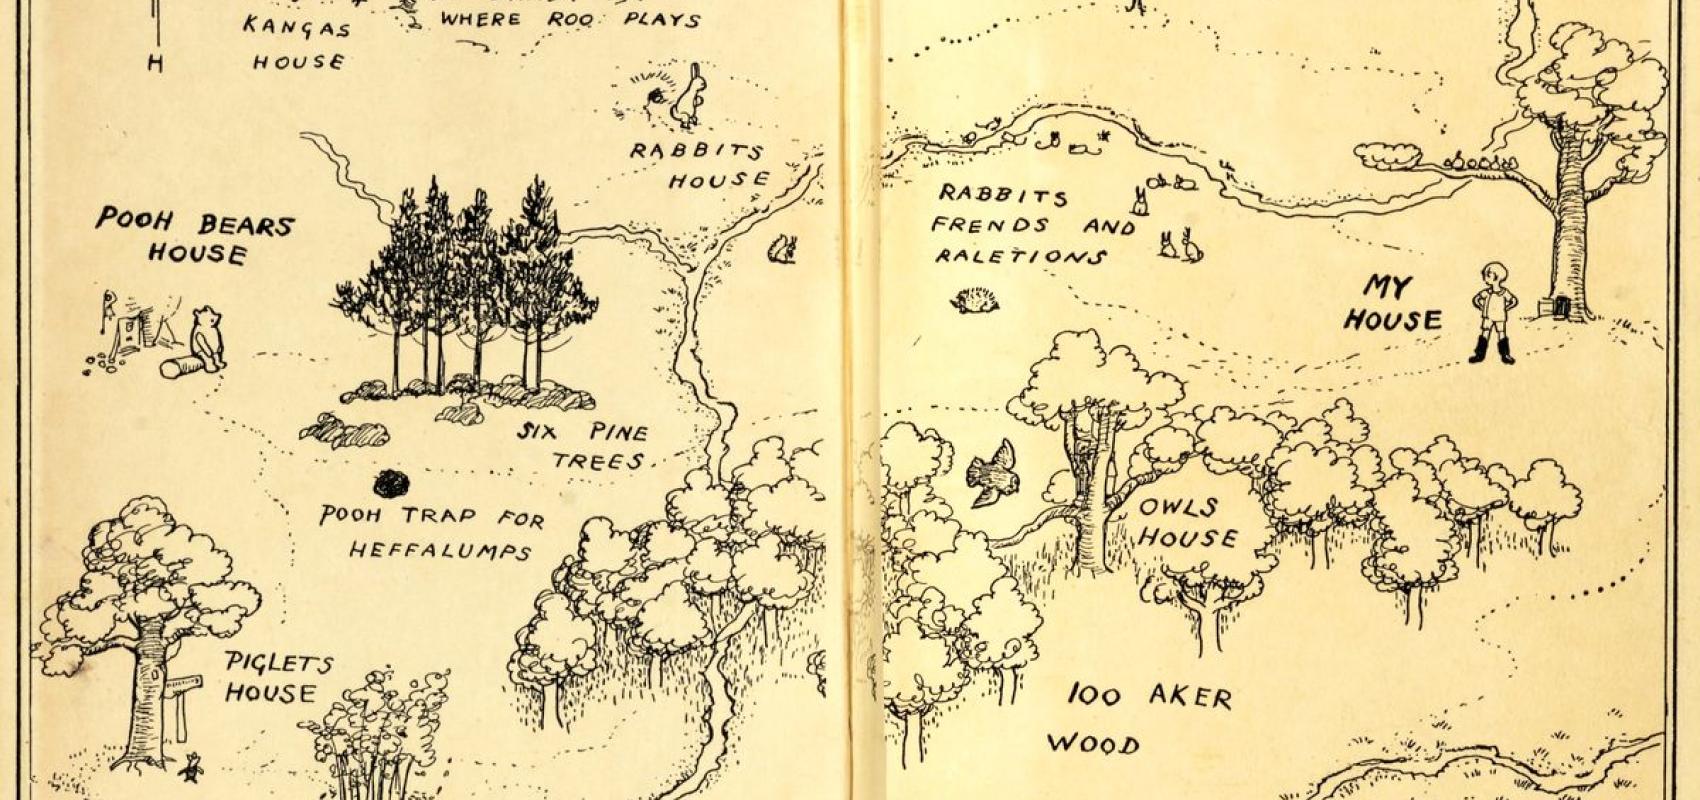 KANGAS
HOUSE
WHERE ROO PLAYS
H
RABBITS
HOUSE
POOH BEARS
HOUSE
SIX PINE
TREES
POOH TRAP FOR
HEFFALUMPS
PIGLETS
HOUSE
RABBITS
FRENDS AND
RALETIONS
MY
HOUSE
OWLS
HOUSE
100 AKER
WOOD